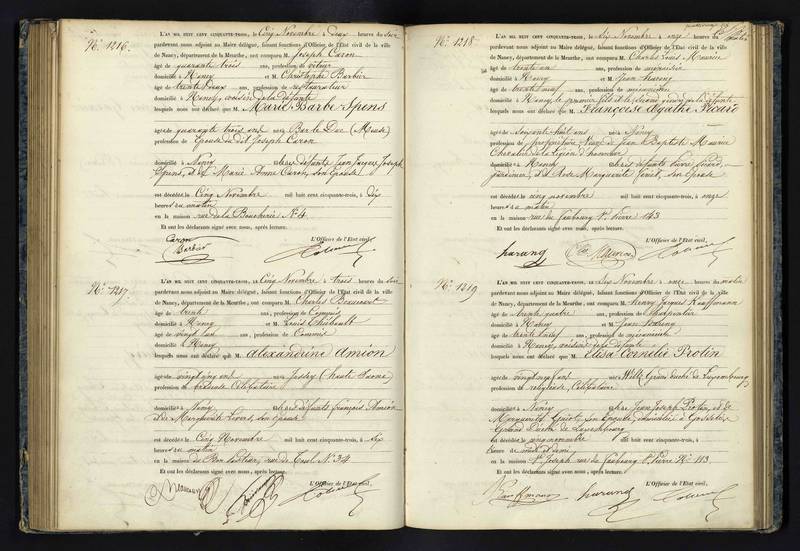 N.º 1216.
L'AN MIL HUIT CENT CINQUANTE-TROIS, le Cinq Novembre à deux heures du soir
pardevant nous adjoint au Maire délégué, faisant fonctions d'Officier de l'Etat civil de la ville
de Nancy, département de la Meurthe, ont comparu M. Joseph Caron
âgé de quarante trois ans, profession de
domicilié à Nancy et M. Christophe Barbier
âgé de trente deux ans, profession de restaurateur
domicilié à Nancy, voisin de la défunte
lesquels nous ont déclaré que M. Marie Barbe Spens
âgée de quarante trois ans née à Bar-le-Duc (Meuse)
profession de Epouse du dit Joseph Caron
domiciliée à Nancy défunts Jean Jacques Joseph
Spens, et de Marie Anne Caron, son épouse
est décédée le Cinq Novembre mil huit cent cinquante-trois, à dix
heures du matin
en la maison rue de la Boucherie N.º 4
Et ont les déclarants signé avec nous, après lecture.
Caron L'Officier de l'Etat civil,
Barbier
N.º 1217.
L'AN MIL HUIT CENT CINQUANTE-TROIS, le Cinq Novembre à trois heures du soir
pardevant nous adjoint au Maire délégué, faisant fonctions d'Officier de l'Etat civil de la ville
de Nancy, département de la Meurthe, ont comparu M. Charles
âgé de trente ans, profession de Commis
domicilié à Nancy et M. Louis Thiébault
âgé de vingt ans, profession de Commis
domicilié à Nancy
lesquels nous ont déclaré que M. Alexandrine Amion
âgée de vingt cinq ans née à Jussey (haute Saône)
profession de Célibataire
domiciliée à Nancy défunts françois Amion
et de Marguerite son épouse
est décédée le Cinq Novembre mil huit cent cinquante-trois, à six
heures du matin
en la maison de Bon Pasteur, rue de Toul N.º 34
Et ont les déclarants signé avec nous, après lecture.
L'Officier de l'Etat civil,
N.º 1218.
L'AN MIL HUIT CENT CINQUANTE-TROIS, le Six Novembre à onze heures du matin
pardevant nous adjoint au Maire délégué, faisant fonctions d'Officier de l'Etat civil de la ville
de Nancy, département de la Meurthe, ont comparu M. Charles Louis Maurice
âgé de trente ans, profession de menuisier
domicilié à Nancy et M. Jean
âgé de trente neuf ans, profession de
domicilié à Nancy, le premier fils et le second voisin de la défunte
lesquels nous ont déclaré que M. Françoise Agathe Picard
âgée de Soixante huit ans née à Nancy
profession de propriétaire Veuve de Jean Baptiste Maurice
Chevalier de la légion d'honneur
domiciliée à Nancy défunts Picard,
jardinier, et de Rose Marguerite son épouse
est décédée le cinq novembre mil huit cent cinquante-trois, à onze
heures du matin
en la maison rue du faubourg S.t Pierre 143
Et ont les déclarants signé avec nous, après lecture.
L'Officier de l'Etat civil,
N.º 1219
L'AN MIL HUIT CENT CINQUANTE-TROIS, le Six Novembre à onze heures du matin
pardevant nous adjoint au Maire délégué, faisant fonctions d'Officier de l'Etat civil de la ville
de Nancy, département de la Meurthe, ont comparu M. Henry Jacques Kauffmann
âgé de trente quatre ans, profession de Charpentier
domicilié à Nancy et M. Jean
âgé de trente neuf ans, profession de
domicilié à Nancy, voisins de la défunte
lesquels nous ont déclaré que M. Elisa Cornélie Protin
âgée de vingt cinq ans née à Wiltz Grand duché de Luxembourg
profession de religieuse, Célibataire
domiciliée à Nancy Jean Joseph Protin, et de
Marguerite son épouse, domiciliés à
Grand Duché de Luxembourg
est décédée le cinq novembre mil huit cent cinquante-trois, à
heures
en la maison S.t Joseph rue du faubourg S.t Pierre N.º 113
Et ont les déclarants signé avec nous, après lecture.
L'Officier de l'Etat civil,
Kauffmann